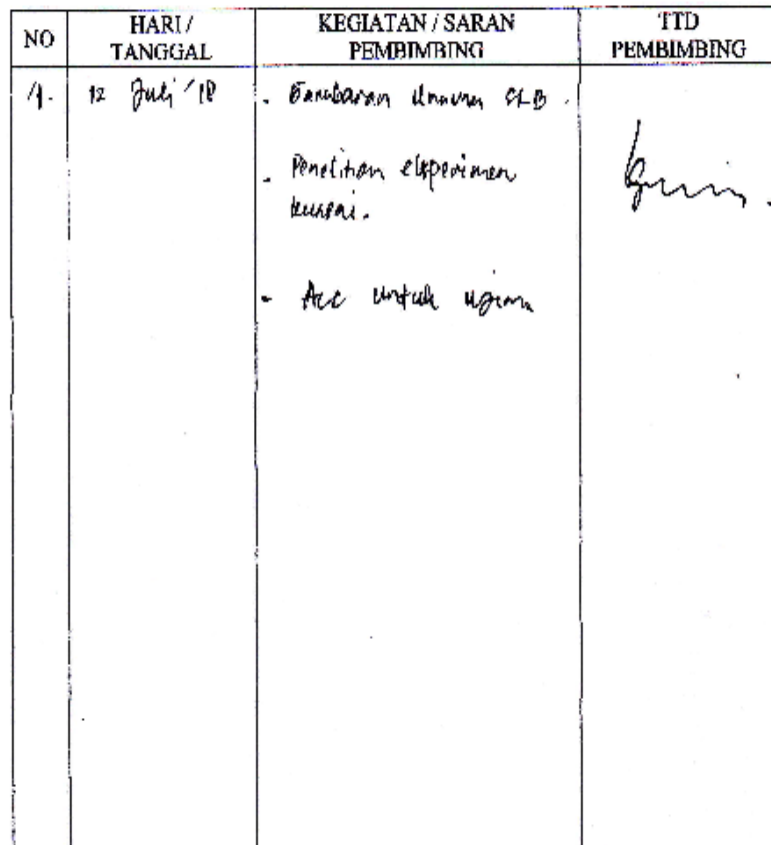 NO
HARI /
TANGGAL
KEGIATAN / SARAN
PEMBIMBING
TTD
PEMBIMBING
1. 12 Juli '18 - Gambaran Umum SLB.
- Penelitian eksperimen
kuasai.
- Acc untuk ujian